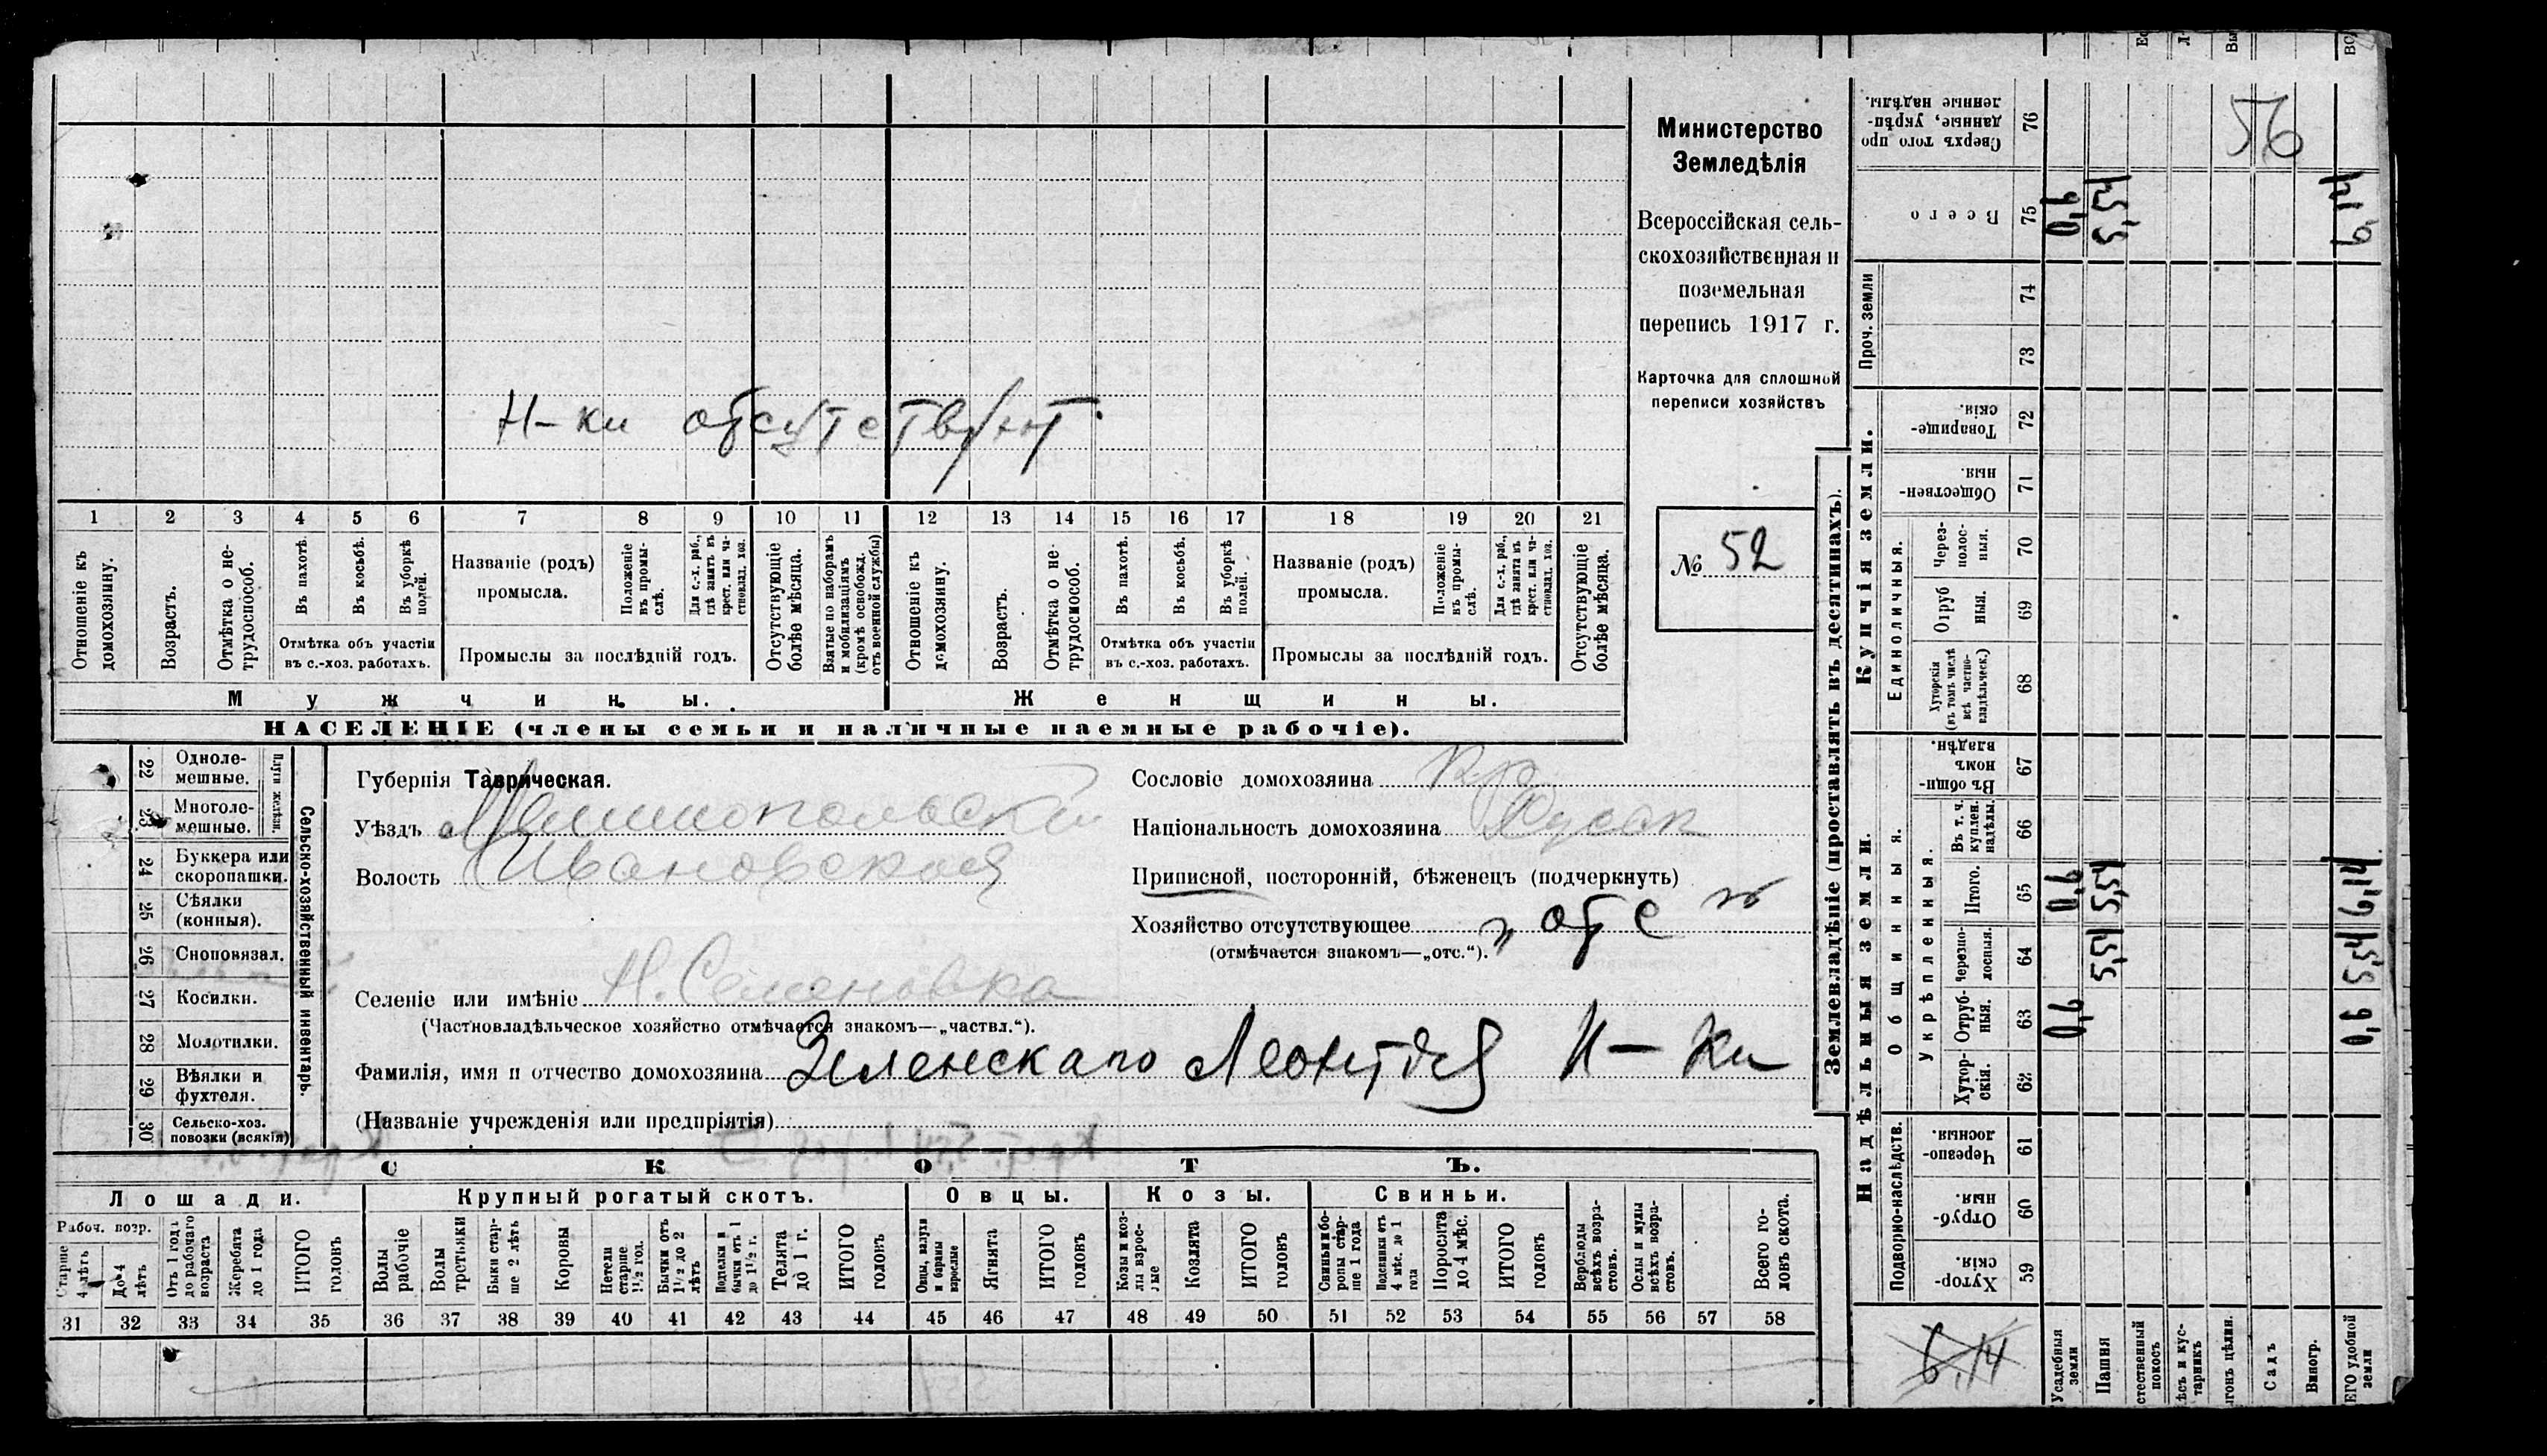 Н-ки отсутствуют.
1 2 3 4 5 6 7 8 9 10 11 12 13 14 15 16 17 18 19 20 21
Отношеніе къ домохозяину.
Возрастъ.
Отмѣтка о нетрудоспособ.
Въ пахотѣ.
Въ косьбѣ.
Въ уборкѣ полей.
Отмѣтка объ участіи въ с.-хоз. работахъ.
Названіе (родъ) промысла.
Положеніе въ промыслѣ.
Для с.-х. раб., гдѣ занятъ въ крест. или частновлад. хоз.
Промыслы за послѣдній годъ.
Отсутствующіе болѣе мѣсяца.
Взятые по наборамъ и мобилизаціямъ (кромѣ освобожд. отъ военной службы)
Отношеніе къ домохозяину.
Возрастъ.
Отмѣтка о нетрудоспособ.
Въ пахотѣ.
Въ косьбѣ.
Въ уборкѣ полей.
Отмѣтка объ участіи въ с.-хоз. работахъ.
Названіе (родъ) промысла.
Положеніе въ промыслѣ.
Для с.-х. раб., гдѣ занята въ крест. или частновлад. хоз.
Промыслы за послѣдній годъ.
Отсутствующіе болѣе мѣсяца.
Мужчины.
Женщины.
НАСЕЛЕНІЕ (члены семьи и наличные наемные рабочіе).
Министерство
Земледѣлія
Всероссійская сель-
скохозяйственная и
поземельная
перепись 1917 г.
Карточка для сплошной
переписи хозяйствъ
№ 52
22 Одноле-мешные.
23 Многоле-мешные.
Плуги желѣзн.
24 Буккера или скоропашки.
25 Сѣялки (конныя).
26 Сноповязал.
27 Косилки.
28 Молотилки.
29 Вѣялки и фухтеля.
30 Сельско-хоз. повозки (всякія)
Сельско-хозяйственный инвентарь.
Губернія Таврическая.
Уѣздъ Мелитопольскій
Волость Ивановская
Селеніе или имѣніе Н. Семеновка
(Частновладѣльческое хозяйство отмѣчается знакомъ—„частвл.“).
Фамилія, имя и отчество домохозяина Зеленскаго Леонтія Н-ки
(Названіе учрежденія или предпріятія)
Сословіе домохозяина кр
Національность домохозяина Русак
Приписной, посторонній, бѣженецъ (подчеркнуть)
Хозяйство отсутствующее „отс“
(отмѣчается знакомъ—„отс.“).
СКОТЪ.
Лошади.
Крупный рогатый скотъ.
Овцы.
Козы.
Свиньи.
Рабоч. возр.
Старше 4 лѣтъ
До 4 лѣтъ
Отъ 1 года до рабочаго возраста
Жеребята до 1 года
ИТОГО головъ
Волы рабочіе
Волы третьяки
Быки старше 2 лѣтъ
Коровы
Нетели старше 1½ год.
Бычки отъ 1½ до 2 лѣтъ
Подтелки и бычки отъ 1 до 1½ г.
Телята до 1 г.
ИТОГО головъ
Овцы, валухи и бараны взрослые
Ягнята
ИТОГО головъ
Козы и козлы взрослые
Козлята
ИТОГО головъ
Свиньи и боровы старше 1 года
Подсвинки отъ 4 мѣс. до 1 года
Поросята до 4 мѣс.
ИТОГО головъ
Верблюды всѣхъ возрастовъ.
Ослы и мулы всѣхъ возрастовъ.
Всего головъ скота.
31 32 33 34 35 36 37 38 39 40 41 42 43 44 45 46 47 48 49 50 51 52 53 54 55 56 57 58
Землевладѣніе (проставлять въ десятинахъ).
Надѣльныя земли.
Купчія земли.
Проч. земли
Подворно-наслѣдств.
Общинныя.
Укрѣпленныя.
Единоличныя.
Хуторскія. 59
Отрубныя. 60
Черезполосныя. 61
Хуторскія. 62
Отрубныя. 63
Черезполосныя. 64
Итого. 65
Въ т. ч. куплен. надѣлы. 66
Въ общинномъ владѣн. 67
Хуторскія (въ томъ числѣ всѣ частновладѣльческ.) 68
Отрубныя. 69
Черезполосныя. 70
Общественныя. 71
Товарищескія. 72
73
74
Всего 75
Сверхъ того проданные, укрѣпленные надѣлы. 76
6,14
Усадебныя земли 0,6 0,6 0,6
Пашня 5,54 5,54 5,54
стественный покосъ
ѣсъ и кустарникъ
гонъ цѣлин.
Садъ
Виногр.
ЕГО удобной земли 0,6 5,54 6,14 6,14
56